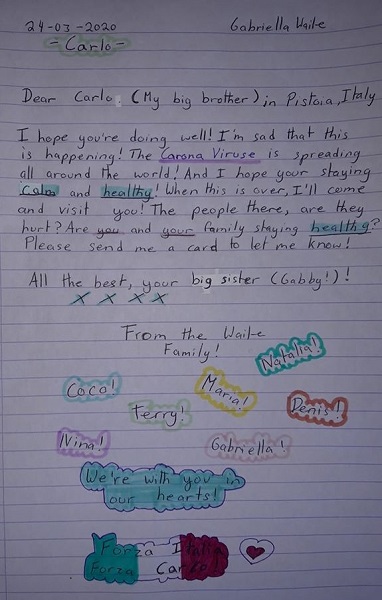 24-03-2020 Gabriella Waite
- Carlo -
Dear Carlo: (My big brother) in Pistoia, Italy
I hope you're doing well! I'm sad that this
is happening! The Carona Viruse is spreading
all around the world! And I hope your staying
calm and healthy! When this is over, I'll come
and visit you! The people there, are they
hurt? Are you and your family staying healthy?
Please send me a card to let me know!
All the best, your big sister (Gabby!)!
X X X X
From the Waite
Family!
Natalia!
Coco!
Maria!
Terry!
Denis!
Nina!
Gabriella!
We're with you in
our hearts!
Forza Italia
Forza Carlo!